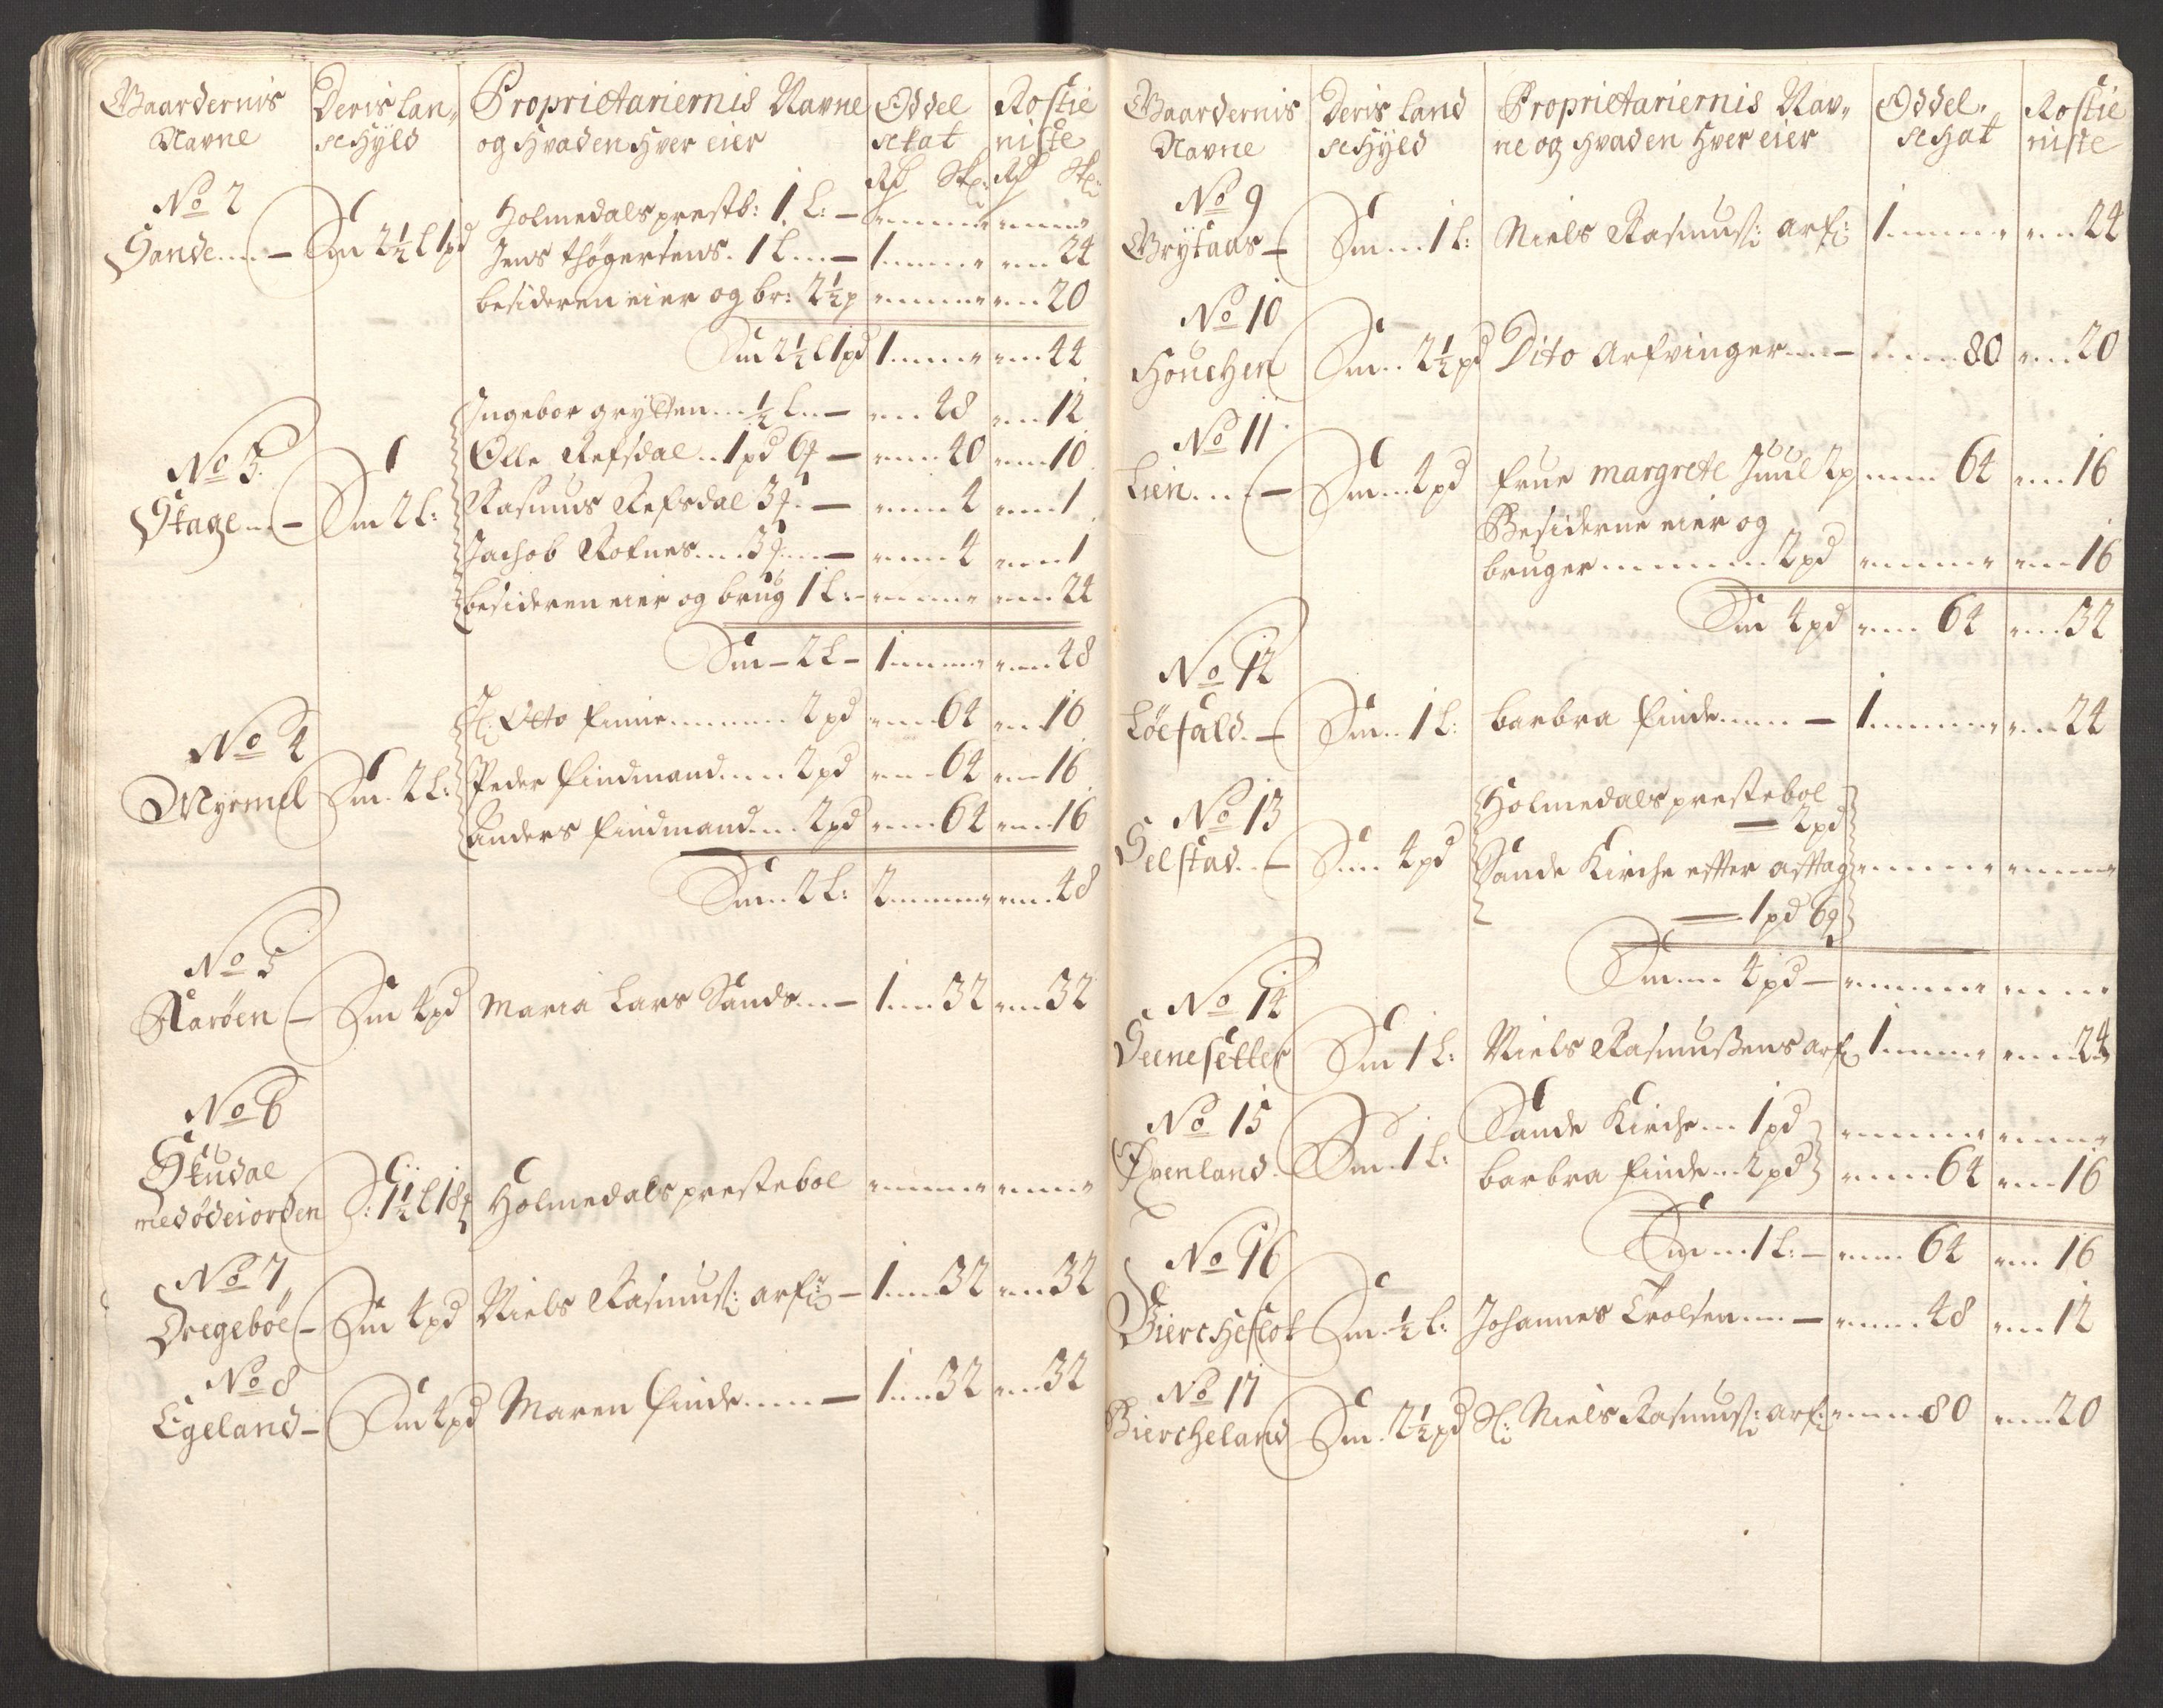 Gaardernis Navne | Deris lan, schyld | Proprietariernis Navne og hvad en hver eier | Oddel skat | Rostie niste
Rd Sk: Rd Sk:
No 2
Sande | Sm 2½ l 1pd | Holmedals prestb: 1 L: —
Jens thøgersens. 1 L — | 1 | 24
besideren eier og br: 2½ p | 20
Sm 2½ l 1pd | 1 | 44
No 3.
Skage — | Sm 2 L: | Ingebor grytten ½ L — | 48 | 12
Olle Refsdal 1pd 6 — | 40 | 10
Rasmus Refsdal 3 — | 4 | 1
Jachob Rofnes 3 — | 4 | 1
besideren eier og brug 1 L: | 24
Sm — 2 L — | 1 | 48
No 4
Myrmel | Sm 2 L: | Hr: Otto finne 2 pd | 64 | 16
Peder findmand 2 pd | 64 | 16
Anders findmand 2 pd | 64 | 16
Sm 2 L: | 2 | 48
No 5
Aarøen — | Sm 4pd | Maria Lars Sands — | 1 32 | 32
No 6
Skudal
med ødeiorden | S: 1½ l 18 | Holmedals prestebol
No 7
Dregebøe — | Sm 4pd | Niels Rasmus: arf: — | 1 32 | 32
No 8
Egeland — | Sm 4pd | Maren finde — | 1 32 | 32
Gaardernis Navne | Deris Land schyld | Proprietariernis Nav, ne og hvad en hver eier | Oddel schat | Rostie niste
No 9
Grytaas — | Sm 1 L: | Niels Rasmus: arf: | 1 | 24
No 10
Houchen | Sm 2½ pd | Dito Arfvinger — | 80 | 20
No 11
Lien — | Sm 4pd | frue margrete Juul 2p | 64 | 16
Besiderne eier og
bruger 2 pd | 16
Sm 4 pd | 64 | 32
No 12
Løefald — | Sm 1 L: | barbra finde — | 1 | 24
No 13
Selstad — | Sm 4 pd | Holmedals prestebol
— 2pd
Sande Kirche efter aftag
— 1pd 6
Sm 4 pd —
No 14
Seenesetter | Sm 1 L: | Niels Rasmussens arf | 1 | 24
No 15
Øvenland | Sm 1 L: | Sande Kirche 1 pd
barbra finde 2 pd | 64 | 16
Sm 1 L: — | 64 | 16
No 16
Biercheflot | Sm ½ L: | Johannes Trolsen — | 48 | 12
No 17
Biercheland | Sm 2½ pd | Sl: Niels Rasmus: arf: | 80 | 20